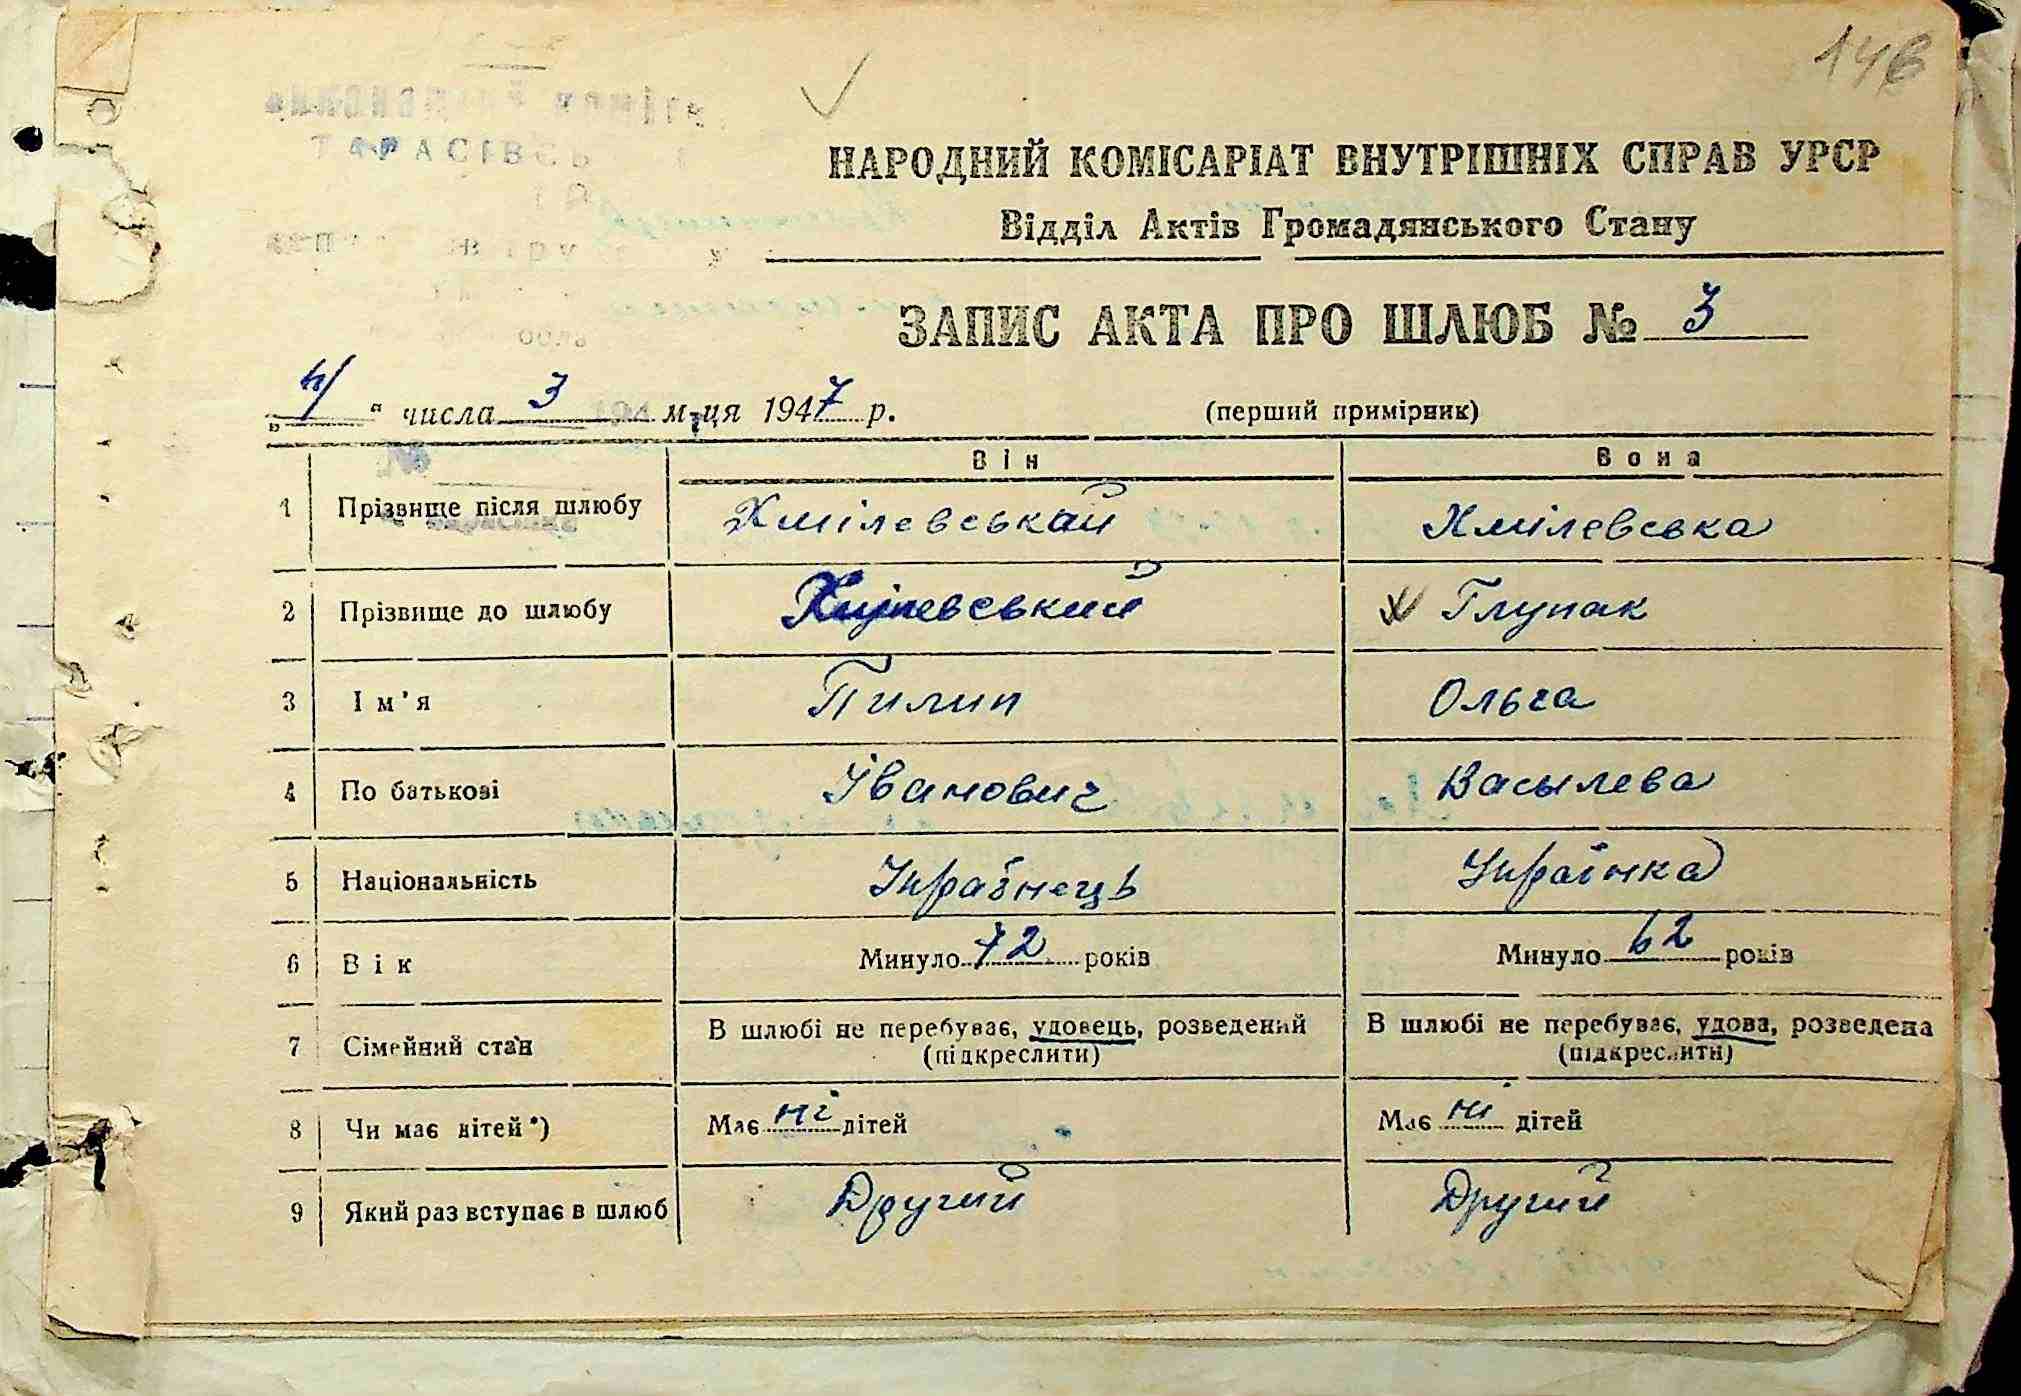 146
НАРОДНИЙ КОМІСАРІАТ ВНУТРІШНІХ СПРАВ УРСР
Відділ Актів Громадянського Стану
ЗАПИС АКТА ПРО ШЛЮБ № 3
„4“ числа 3 м-ця 1947 р. (перший примірник)
Він Вона
1 Прізвище після шлюбу Хмілевський Хмілевська
2 Прізвище до шлюбу Хмілевський Глупак
3 Ім'я Пилип Ольга
4 По батькові Іванович Васылева
5 Національність Українець Українка
6 Вік Минуло 72 років Минуло 62 років
7 Сімейний стан В шлюбі не перебуває, удовець, розведений (підкреслити) В шлюбі не перебуває, удова, розведена (підкреслити)
8 Чи має дітей*) Має ні дітей Має ні дітей
9 Який раз вступає в шлюб Другий Другий